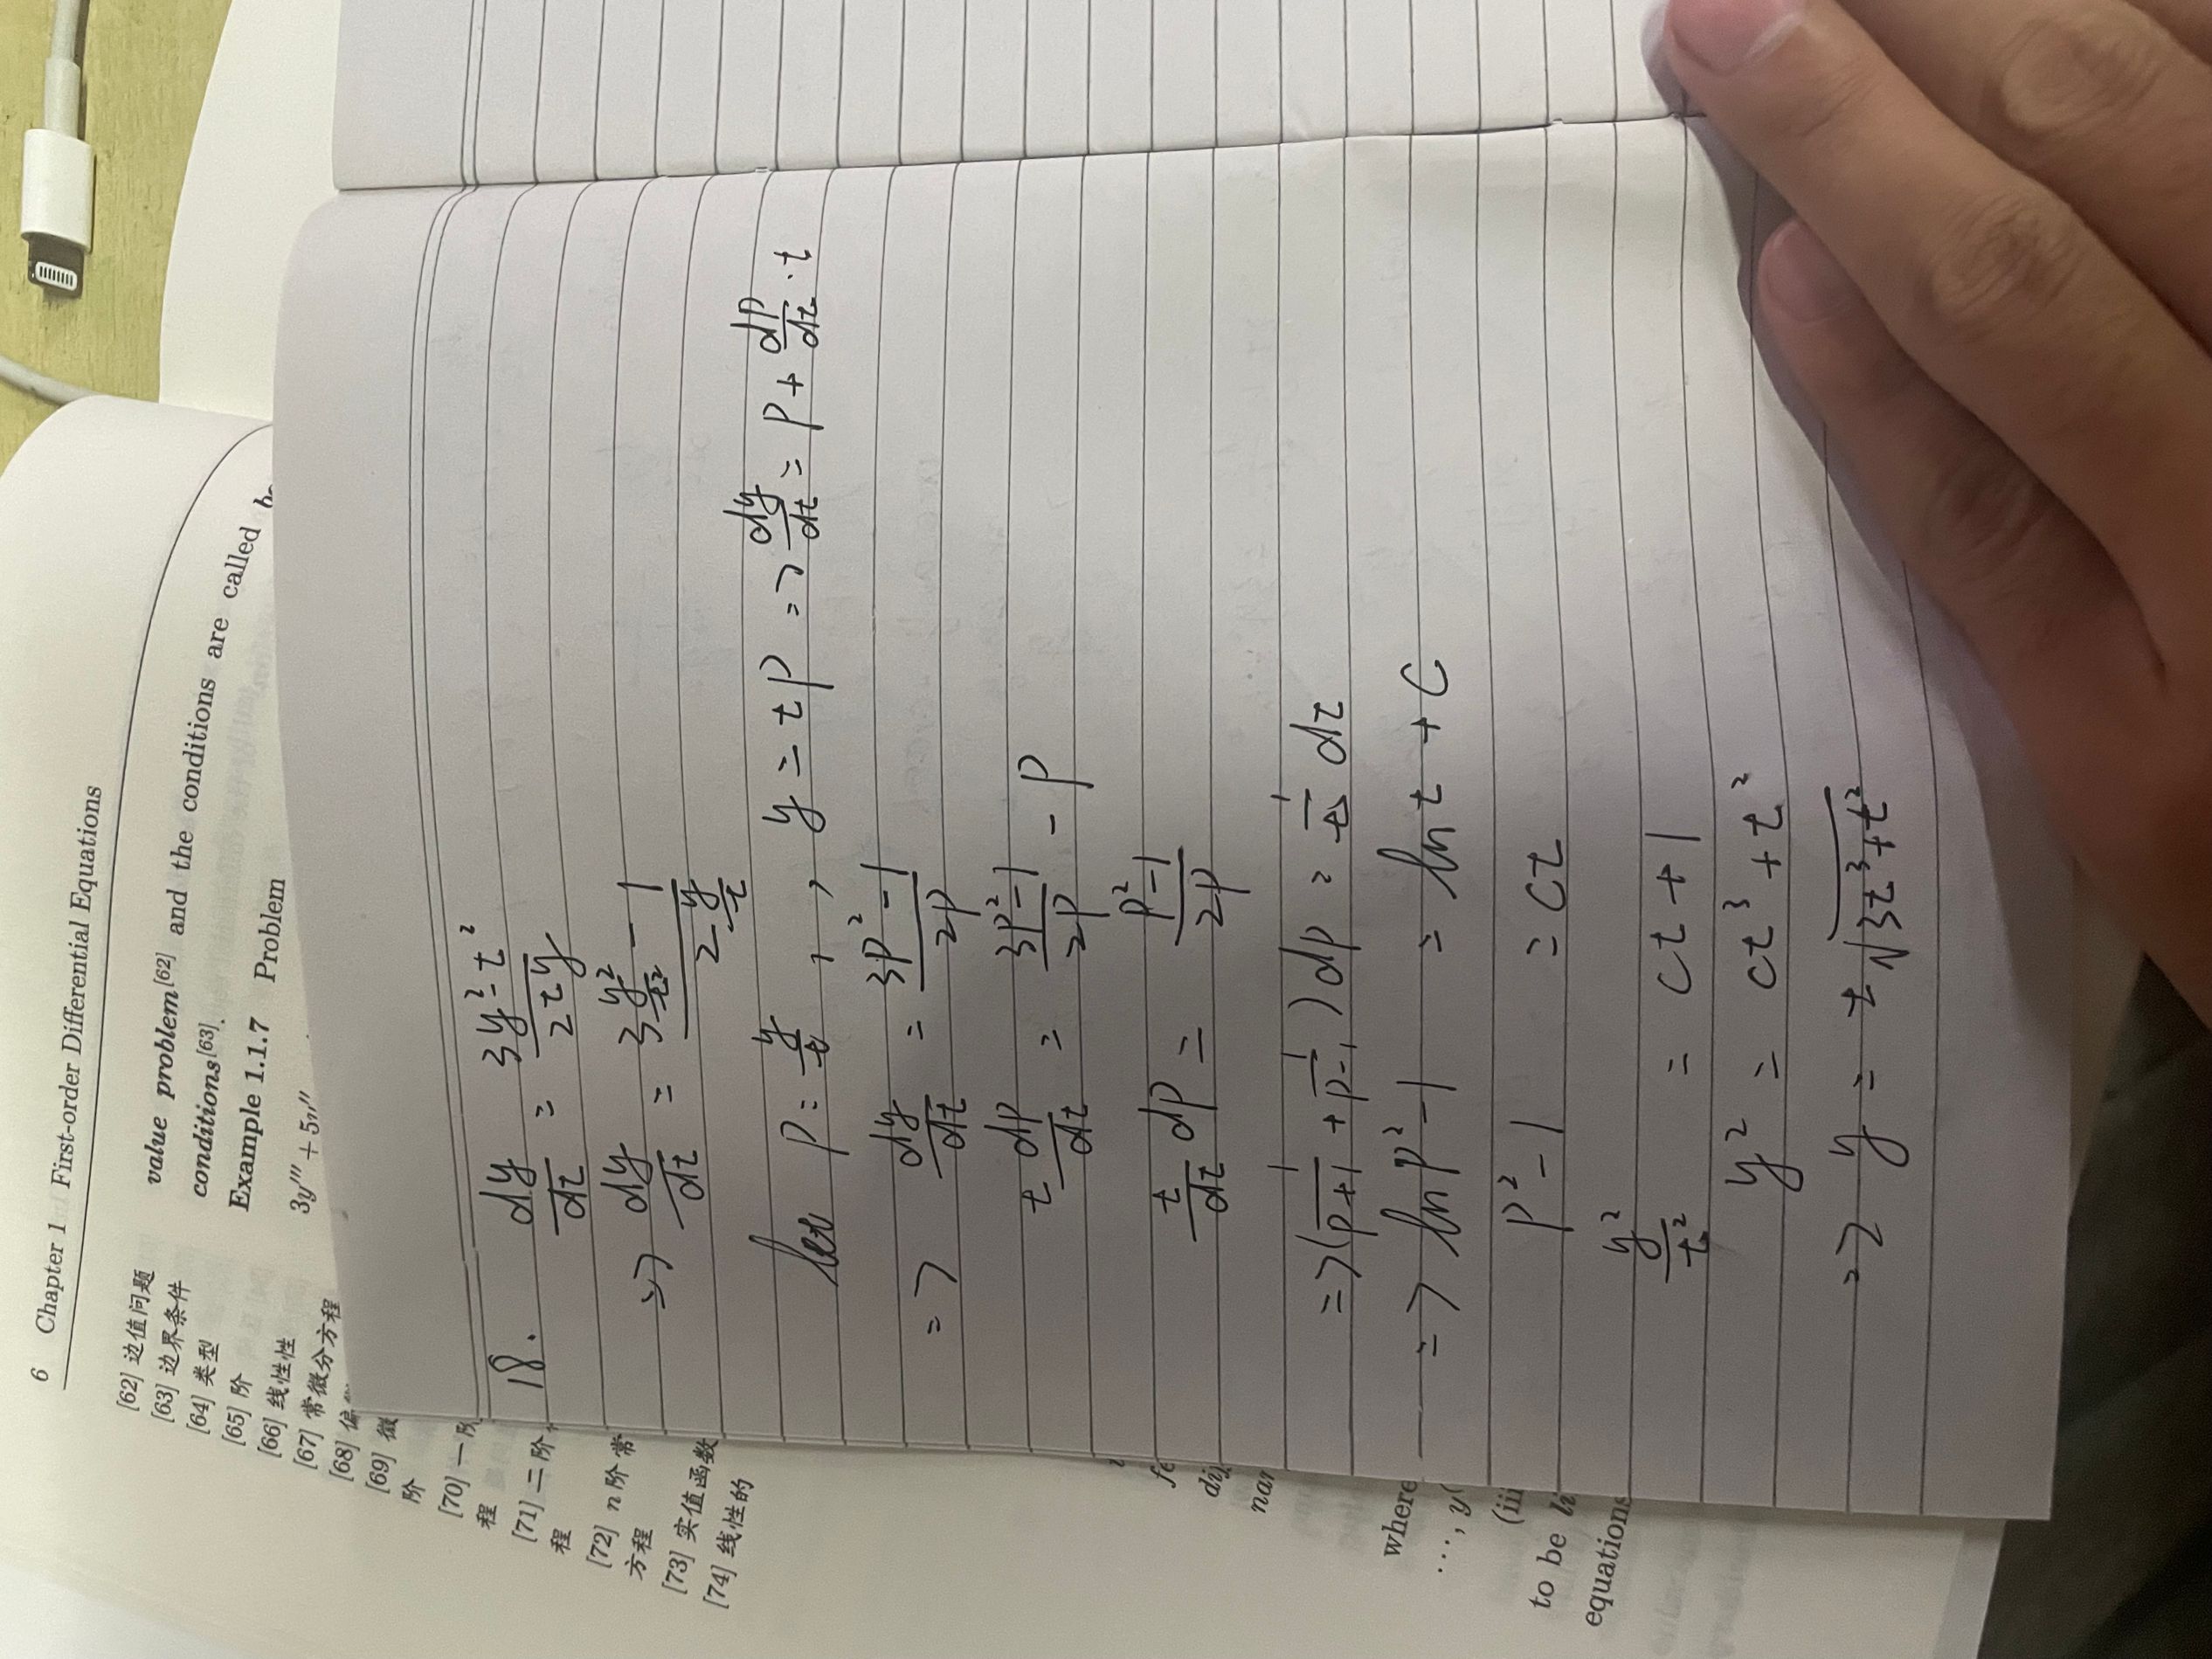 6 Chapter 1 First-order Differential Equations
[62] 边值问题
[63] 边界条件
[64] 类型
[65] 阶
[66] 线性性
[67] 常微分方程
[68] 偏
[69] 微
阶
[70] 一阶
程
[71] 二阶
程
[72] n阶常
方程
[73] 实值函数
[74] 线性的
value problem[62] and the conditions are called
conditions[63].
Example 1.1.7 Problem
3y''' + 5y''
where
…, y(
(iii
to be li
equations
18. dy/dt = (3y²-t²)/(2ty)
=> dy/dt = (3 y²/t² - 1)/(2 y/t)
let p = y/t , , y = tp => dy/dt = p + dp/dt · t
=> dy/dt = (3p²-1)/(2p)
t dp/dt = (3p²-1)/(2p) - p
t/dt dp = (p²-1)/(2p)
=> (1/(p+1) + 1/(p-1)) dp = 1/t dt
=> ln p²-1 = ln t + C
p²-1 = ct
y²/t² = ct + 1
y² = ct³ + t²
=> y = ± √(3t³+t²)